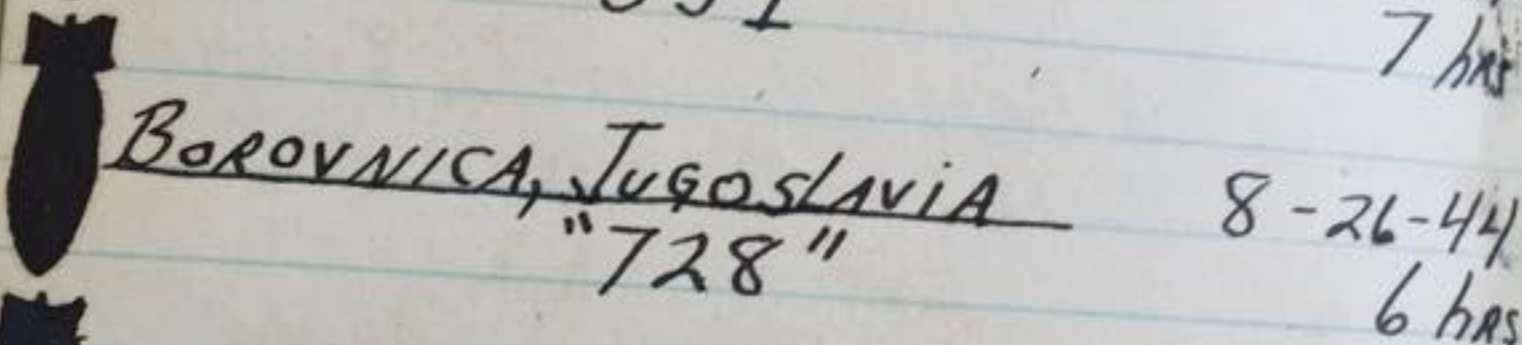 7 hrs
BOROVNICA, JUGOSLAVIA 8-26-44
"728" 6 hRS